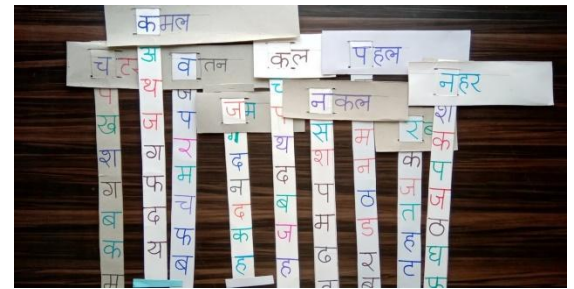 कमल
वतन
कल
पहल
नहर
जम
नकल
ख श ग ब क
अ थ ज ग फ द य
ज प र म च फ ब
द न द क ह
थ द ब ज ह
स श प म ढ
म न ठ ड
क ज त ह ट
श क प ज ठ घ फ